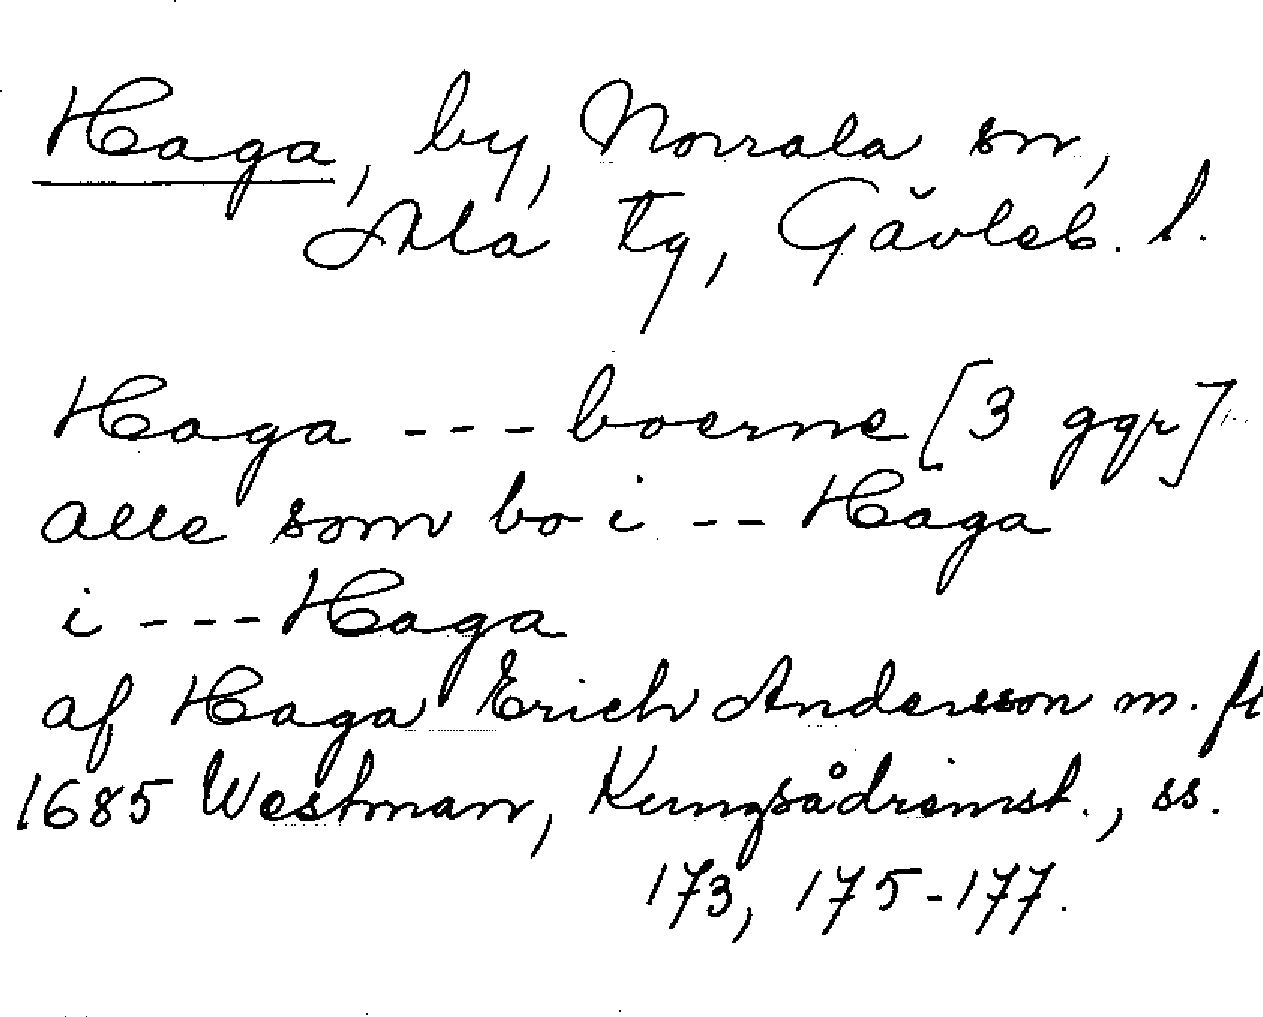 Haga, by, Norrala sn,
Ala tg, Gävleb. l.
Haga --- boerne [3 ggr]
alle som bo i -- Haga
i --- Haga
af Haga Erich Andersson m. fl
1685 Westman, Kungsådreinst., ss.
173, 175-177.